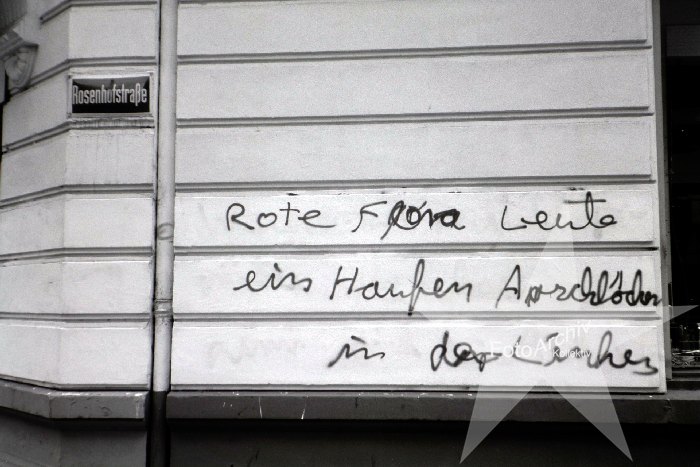 Rosenhofstraße
Rote Flora Leute
ein Haufen Arschlöcher
in der
FotoArchiv
Kollektiv